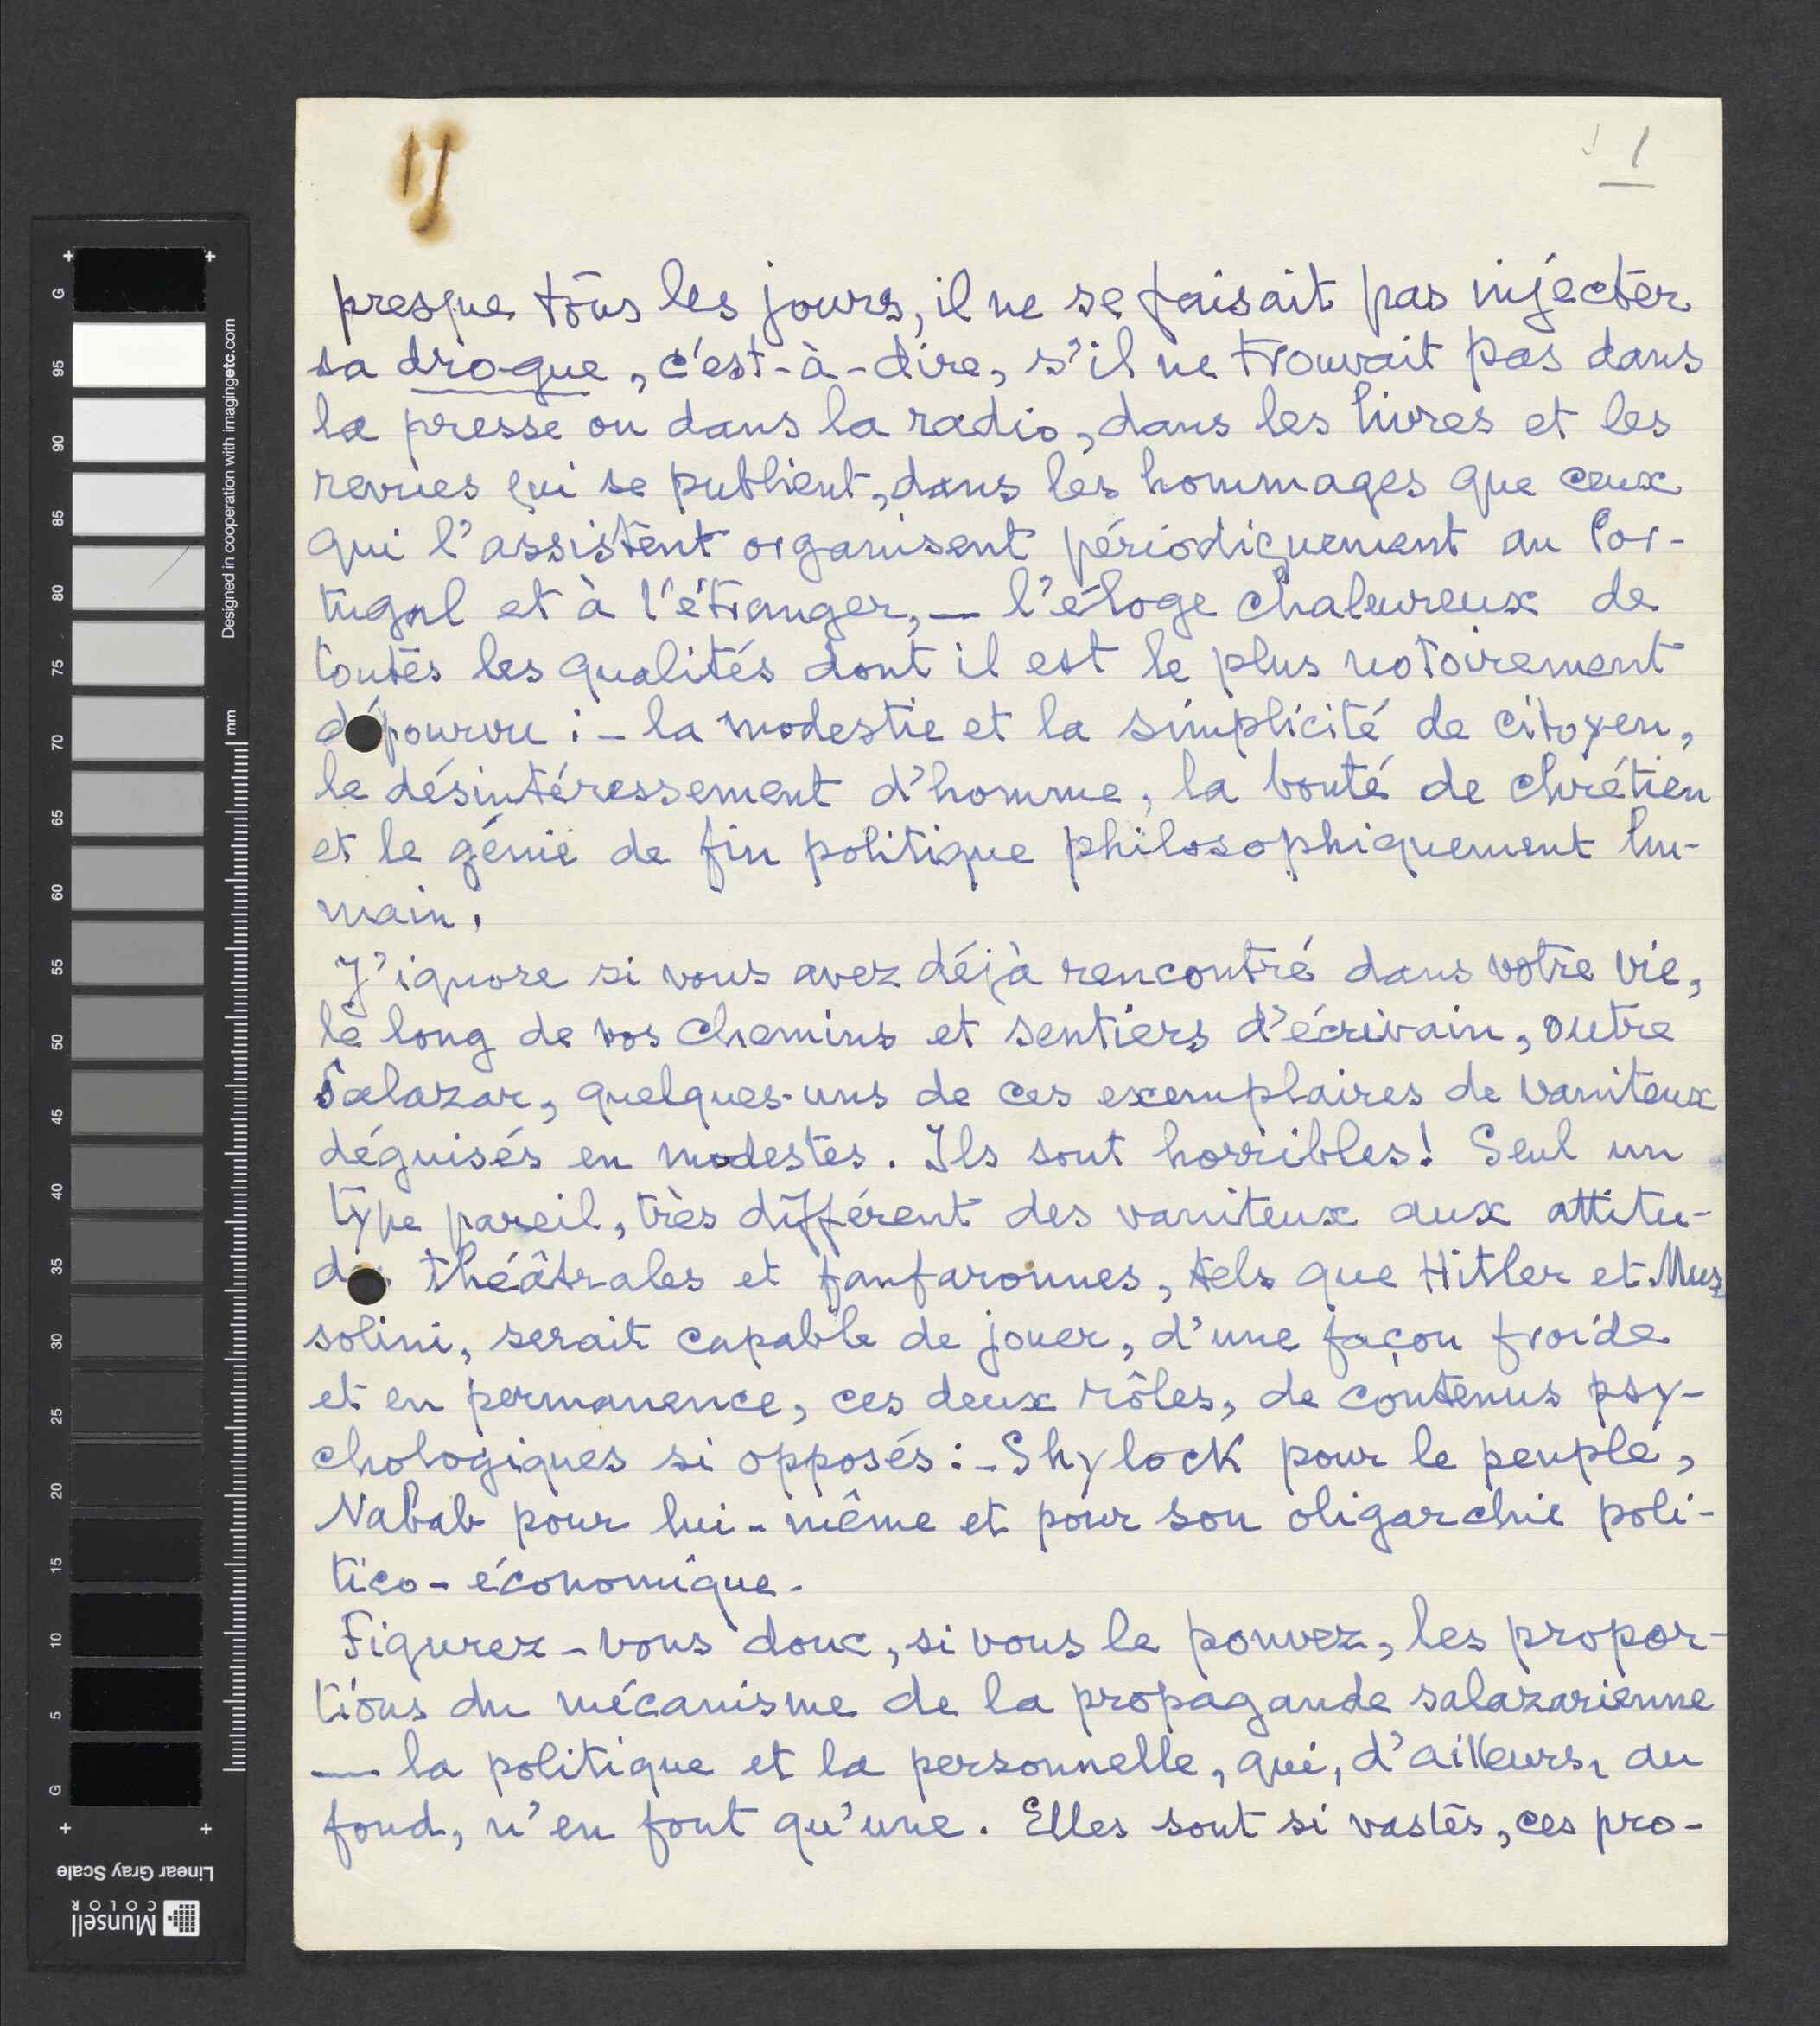 1
presque tous les jours, il ne se faisait pas injecter
sa drogue, c'est-à-dire, s'il ne trouvait pas dans
la presse ou dans la radio, dans les livres et les
revues qui se publient, dans les hommages que ceux
qui l'assistent organisent périodiquement au Por-
tugal et à l'étranger, — l'éloge chaleureux de
toutes les qualités dont il est le plus notoirement
dépourvu : - la modestie et la simplicité de citoyen,
le désintéressement d'homme, la bonté de chrétien
et le génie de fin politique philosophiquement hu-
main.
J'ignore si vous avez déjà rencontré dans votre vie,
le long de vos chemins et sentiers d'écrivain, outre
Salazar, quelques-uns de ces exemplaires de vaniteux
déguisés en modestes. Ils sont horribles! Seul un
type pareil, très différent des vaniteux aux attitu-
des théâtrales et fanfaronnes, tels que Hitler et Mus
solini, serait capable de jouer, d'une façon froide
et en permanence, ces deux rôles, de contenus psy-
chologiques si opposés : - Shylock pour le peuple,
Nabab pour lui-même et pour son oligarchie poli-
tico-économique.
Figurez-vous donc, si vous le pouvez, les propor-
tions du mécanisme de la propagande salazarienne
— la politique et la personnelle, qui, d'ailleurs, au
fond, n'en font qu'une. Elles sont si vastes, ces pro-
Designed in cooperation with imagingetc.com
mm
G 95 90 85 80 75 70 65 60 55 50 45 40 35 30 25 20 15 10 5 G
Linear Gray Scale
Munsell
COLOR